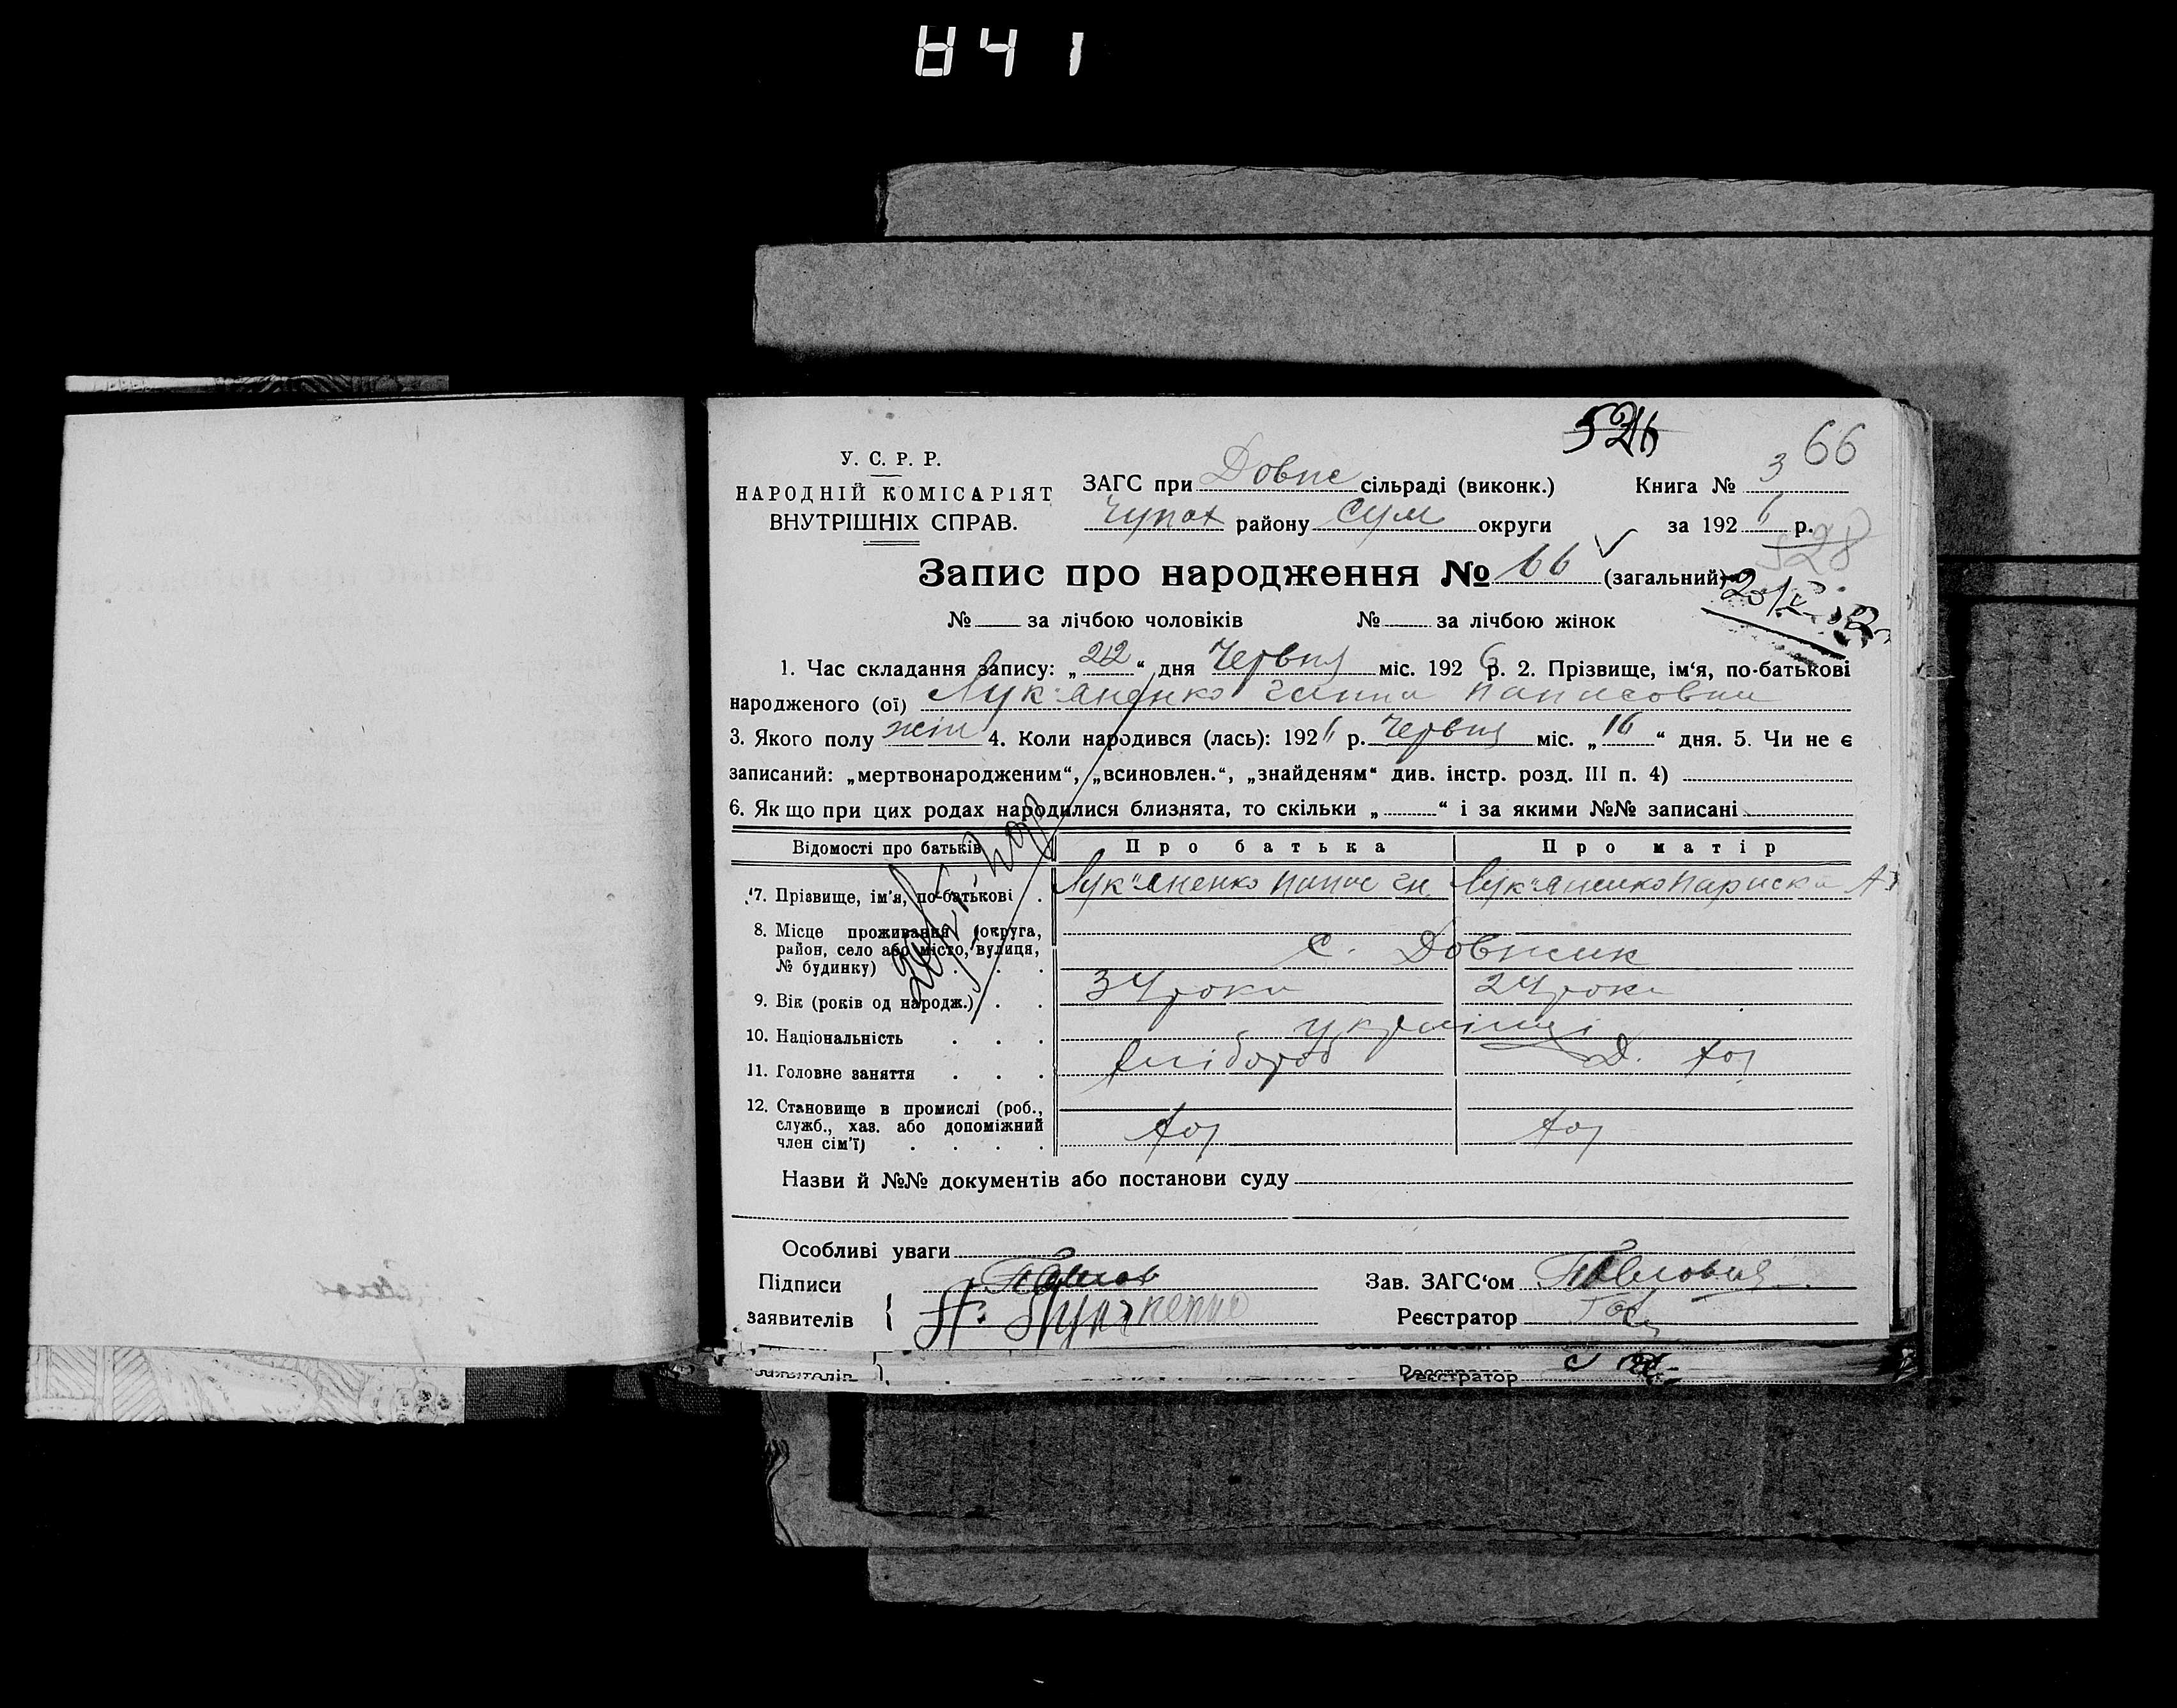 841
66
У. С. Р. Р.
НАРОДНІЙ КОМІСАРІЯТ
ВНУТРІШНІХ СПРАВ.
ЗАГС при Довж сільраді (виконк.) Книга № 3
Чупах району Сум округи за 1926 р.
528
Запис про народження № 66 (загальний)
№ за лічбою чоловіків № за лічбою жінок
1. Час складання запису: „22“ дня Червня міс. 1926 р. 2. Прізвище, ім‘я, по-батькові
народженого (ої) Лук'яненко Ганна Панасовна
3. Якого полу жін 4. Коли народився (лась): 1926 р. Червня міс. „16“ дня. 5. Чи не є
записаний: „мертвонародженим“, „всиновлен.“, „знайденям“ див. інстр. розд. III п. 4)
6. Як що при цих родах народилися близнята, то скільки „ “ і за якими №№ записані
Відомості про батьків Про батька Про матір
7. Прізвище, ім'я, по-батькові Лук"яненко Панас Лук"яненко Параска
8. Місце проживання (округа,
район, село або місто, вулиця,
№ будинку) с. Довжик
9. Вік (років од народж.) 34 роки 24 роки
10. Національність українці
11. Головне заняття хлібороб Д. хоз
12. Становище в промислі (роб.,
служб., хаз. або допоміжний
член сім'ї) хоз хоз
Назви й №№ документів або постанови суду
Особливі уваги
Підписи
заявителів
Зав. ЗАГС‘ом
Реєстратор
заявителів
Реєстратор